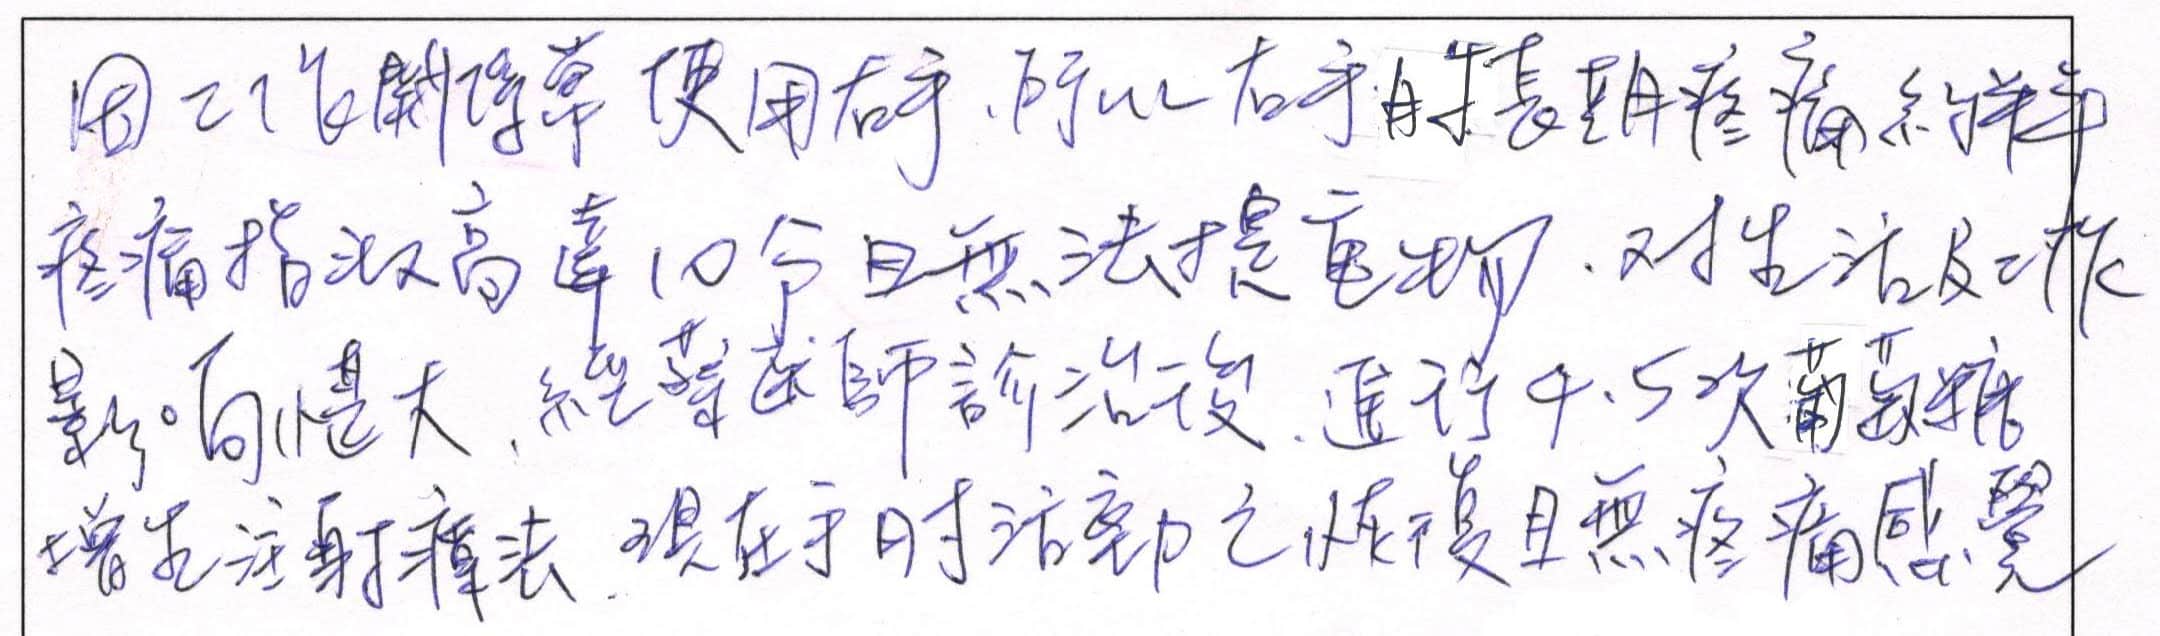 因工作關係常使用右手、所以右手肘長期疼痛約半年
疼痛指数高達10分且無法提重物、对生活及工作
影响很大、經葉醫師診治後、進行4、5次葡萄糖
增生注射療法、現在手肘活動已恢復且無疼痛感覺